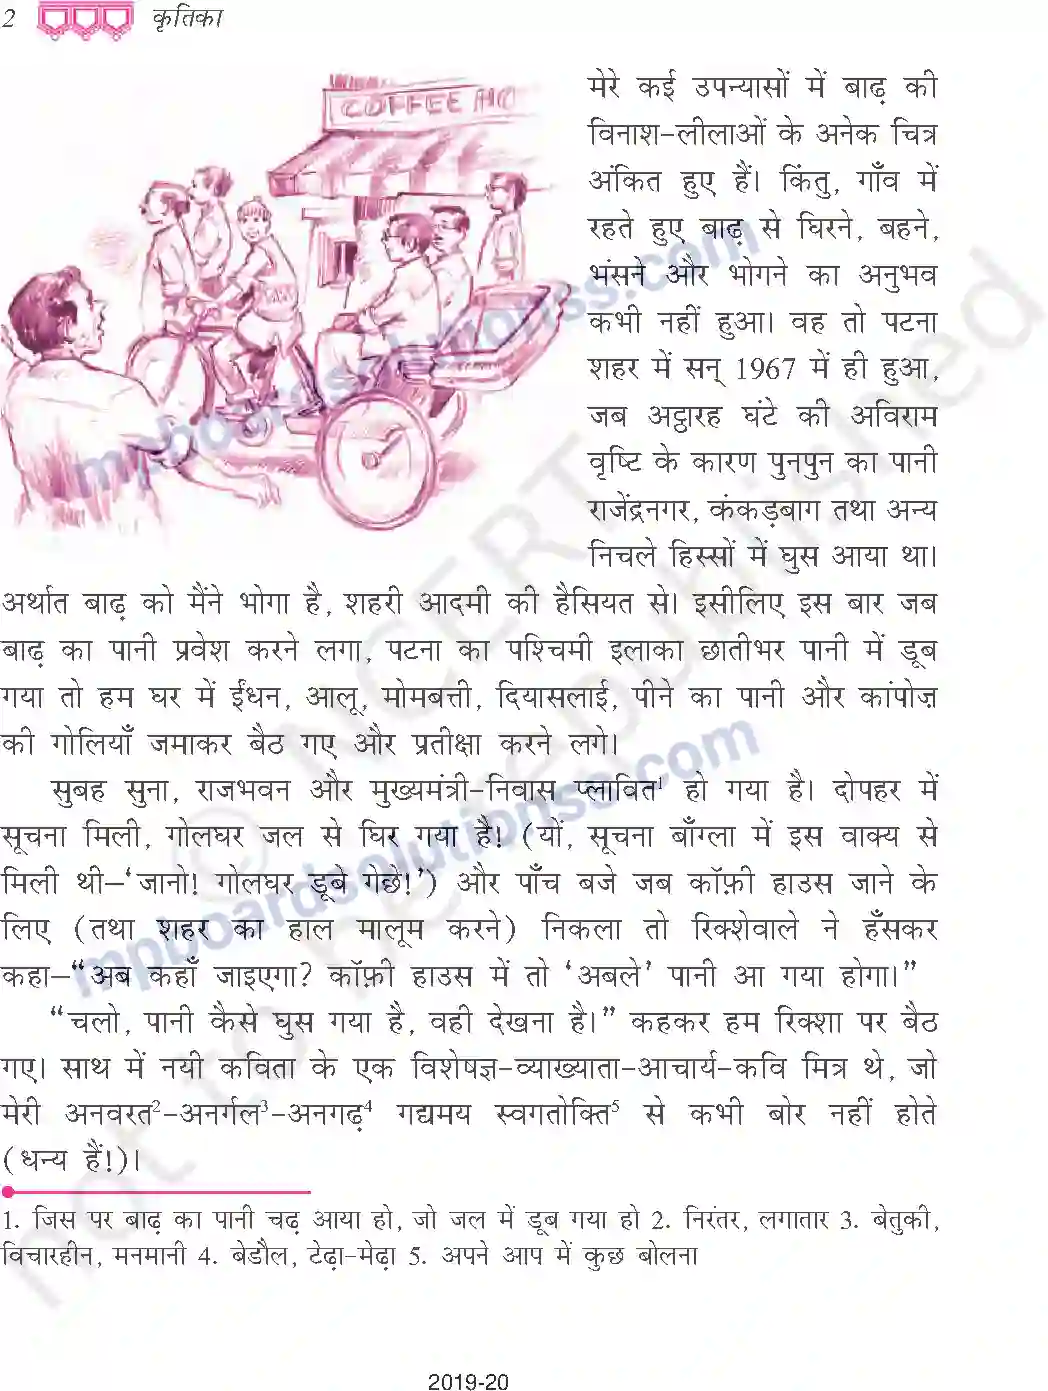 2 कृतिका
COFFEE HO
मेरे कई उपन्यासों में बाढ़ की
विनाश-लीलाओं के अनेक चित्र
अंकित हुए हैं। किंतु, गाँव में
रहते हुए बाढ़ से घिरने, बहने,
भंसने और भोगने का अनुभव
कभी नहीं हुआ। वह तो पटना
शहर में सन् 1967 में ही हुआ,
जब अट्ठारह घंटे की अविराम
वृष्टि के कारण पुनपुन का पानी
राजेंद्रनगर, कंकड़बाग तथा अन्य
निचले हिस्सों में घुस आया था।
अर्थात बाढ़ को मैंने भोगा है, शहरी आदमी की हैसियत से। इसीलिए इस बार जब
बाढ़ का पानी प्रवेश करने लगा, पटना का पश्चिमी इलाका छातीभर पानी में डूब
गया तो हम घर में ईंधन, आलू, मोमबत्ती, दियासलाई, पीने का पानी और कांपोज़
की गोलियाँ जमाकर बैठ गए और प्रतीक्षा करने लगे।
सुबह सुना, राजभवन और मुख्यमंत्री-निवास प्लावित¹ हो गया है। दोपहर में
सूचना मिली, गोलघर जल से घिर गया है! (यों, सूचना बाँग्ला में इस वाक्य से
मिली थी—‘जानो! गोलघर डूबे गेछे!’) और पाँच बजे जब कॉफ़ी हाउस जाने के
लिए (तथा शहर का हाल मालूम करने) निकला तो रिक्शेवाले ने हँसकर
कहा—“अब कहाँ जाइएगा? कॉफ़ी हाउस में तो ‘अबले’ पानी आ गया होगा।”
“चलो, पानी कैसे घुस गया है, वही देखना है।” कहकर हम रिक्शा पर बैठ
गए। साथ में नयी कविता के एक विशेषज्ञ-व्याख्याता-आचार्य-कवि मित्र थे, जो
मेरी अनवरत²-अनर्गल³-अनगढ़⁴ गद्यमय स्वगतोक्ति⁵ से कभी बोर नहीं होते
(धन्य हैं!)।
1. जिस पर बाढ़ का पानी चढ़ आया हो, जो जल में डूब गया हो 2. निरंतर, लगातार 3. बेतुकी,
विचारहीन, मनमानी 4. बेडौल, टेढ़ा-मेढ़ा 5. अपने आप में कुछ बोलना
2019-20
mpboardsolutionss.com
mpboardsolutionss.com
© NCERT
not to be republished